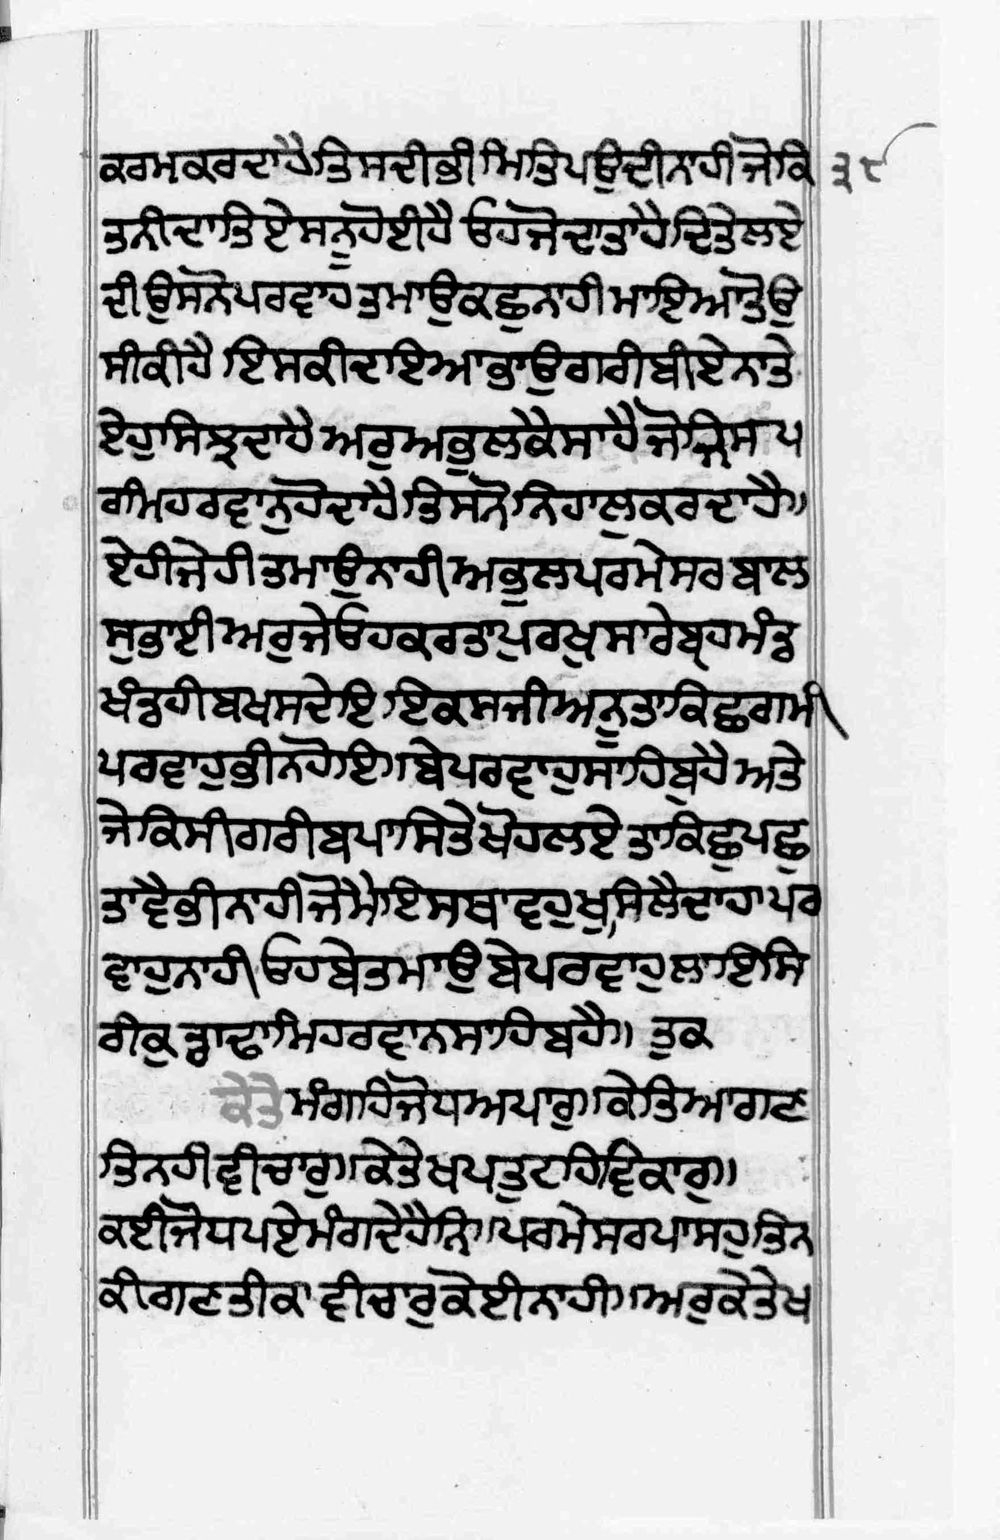 ਕਰਮਕਰਦਾਹੈਤਿਸਦੀਭੀਮਿਤਿਪਉਦੀਨਾਹੀਜੋਕਿ ੩੯
ਤਨੀਦਾਤਿਏਸਨੂਹੋਈਹੈ ਓਹਜੋਦਾਤਾਹੈਦਿਤੇਲਏ
ਦੀਉਸਨੋਪਰਵਾਹਤਮਾਉਕਛੁਨਾਹੀਮਾਇਆਤੋਉ
ਸੀਕੀਹੈ ਇਸਕੀਦਾਇਆਭਾਉਗਰੀਬੀਏਨਾਤੇ
ਏਹੁਸਿਝਦਾਹੈ ਅਰੁਅਭੁਲਕੈਸਾਹੈਜੋਜਿਸਪ
ਰਮਿਹਰਵਾਨੁਹੋਦਾਹੈਤਿਸਨੋਨਿਹਾਲੁਕਰਦਾਹੈ॥
ਏਹੀਜੇਹੀਤਮਾਉਨਾਹੀਅਭੁਲਪਰਮੇਸਰਬਾਲ
ਸੁਭਾਈਅਰੁਜੇਓਹਕਰਤਾਪੁਰਖੁਸਾਰੇਬ੍ਰਹਮੰਡ
ਖੰਡਹੀਬਖਸਦੇਇਇਕਸਜੀਅਨੂਤਾਕਿਛਗਮੀ
ਪਰਵਾਹੁਭੀਨਹੋਇ॥ਬੇਪਰਵਾਹੁਸਾਹਿਬੁਹੈਅਤੇ
ਜੇਕਿਸੀਗਰੀਬਪਾਸਿਤੇਖੋਹਲਏ ਤਾਕਿਛੁਪਛੁ
ਤਾਵੈਭੀਨਾਹੀਜੋਮੈਇਸਥਾਵਹੁਖੁਸਿਲੈਦਾਹਾਪਰ
ਵਾਹੁਨਾਹੀ ਓਹਬੇਤਮਾਉਬੇਪਰਵਾਹੁਲਾਇਸਿ
ਰੀਕੁਡਾਢਾਮਿਹਰਵਾਨਸਾਹਿਬਹੈ॥ ਤੁਕ
ਕੇਤੇ ਮੰਗਹਿਜੋਧਅਪਾਰੁ॥ਕੇਤਿਆਗਣ
ਤਿਨਹੀਵੀਚਾਰੁ॥ਕੇਤੇਖਪਤੁਟਹਿਵਿਕਾਰੁ॥
ਕਈਜੋਧਪਏਮੰਗਦੇਹੈਨਿ॥ਪਰਮੇਸਰਪਾਸਹੁਤਿਨ
ਕੀਗਣਤੀਕਾਵੀਚਾਰੁਕੋਈਨਾਹੀ॥ਅਰੁਕੇਤੇਖ